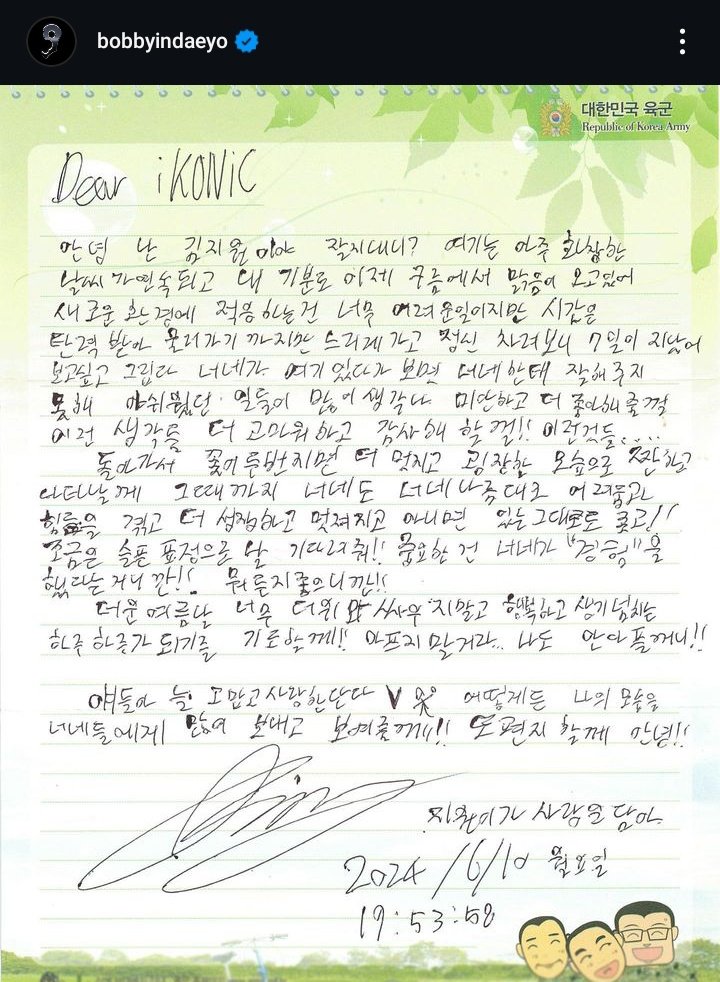 bobbyindaeyo
대한민국 육군
Republic of Korea Army
Dear iKONIC
안녕 난 김지원이야 잘지내니? 여기는 아주 화창한
날씨가 연속되고 내 기분도 이제 구름에서 맑음이 오고있어
새로운 환경에 적응하는건 너무 어려운일이지만 시간은
탄력 받아 올라가기 까지만 느리게가고 정신 차려보니 7일이 지났어
보고싶고 그립다 너네가 여기 있다가 보면 너네한테 잘해주지
못해 아쉬웠던 일들이 많이 생각나 미안하고 더 좋아해줄껄
이런 생각들 더 고마워하고 감사해 할껄!! 이런것들....
돌아가서 꽃이 두번지면 더 멋지고 굉장한 모습으로 짠하고
나타날게 그때까지 너네도 너네 나름대로 어려움과
힘듦을 겪고 더 성장하고 멋져지고 아니면 있는 그대로도 좋고!!
조금은 슬픈 표정으로 날 기다려줘!! 중요한 건 너네가 "경험"을
했다는거니깐!! 뭐든지좋으니깐!!
더운 여름날 너무 더위와 싸우지말고 행복하고 생기넘치는
하루 하루가 되기를 기도할게!! 아프지말거라... 나도 안아플꺼니!!
얘들아 늘 고맙고 사랑한단다 V 어떻게든 나의 모습을
너네들에게 많이 보내고 보여줄께!!! 또 편지 할게 안녕!!
지원이가 사랑을 담아
2024/6/10 월요일
19:53:58